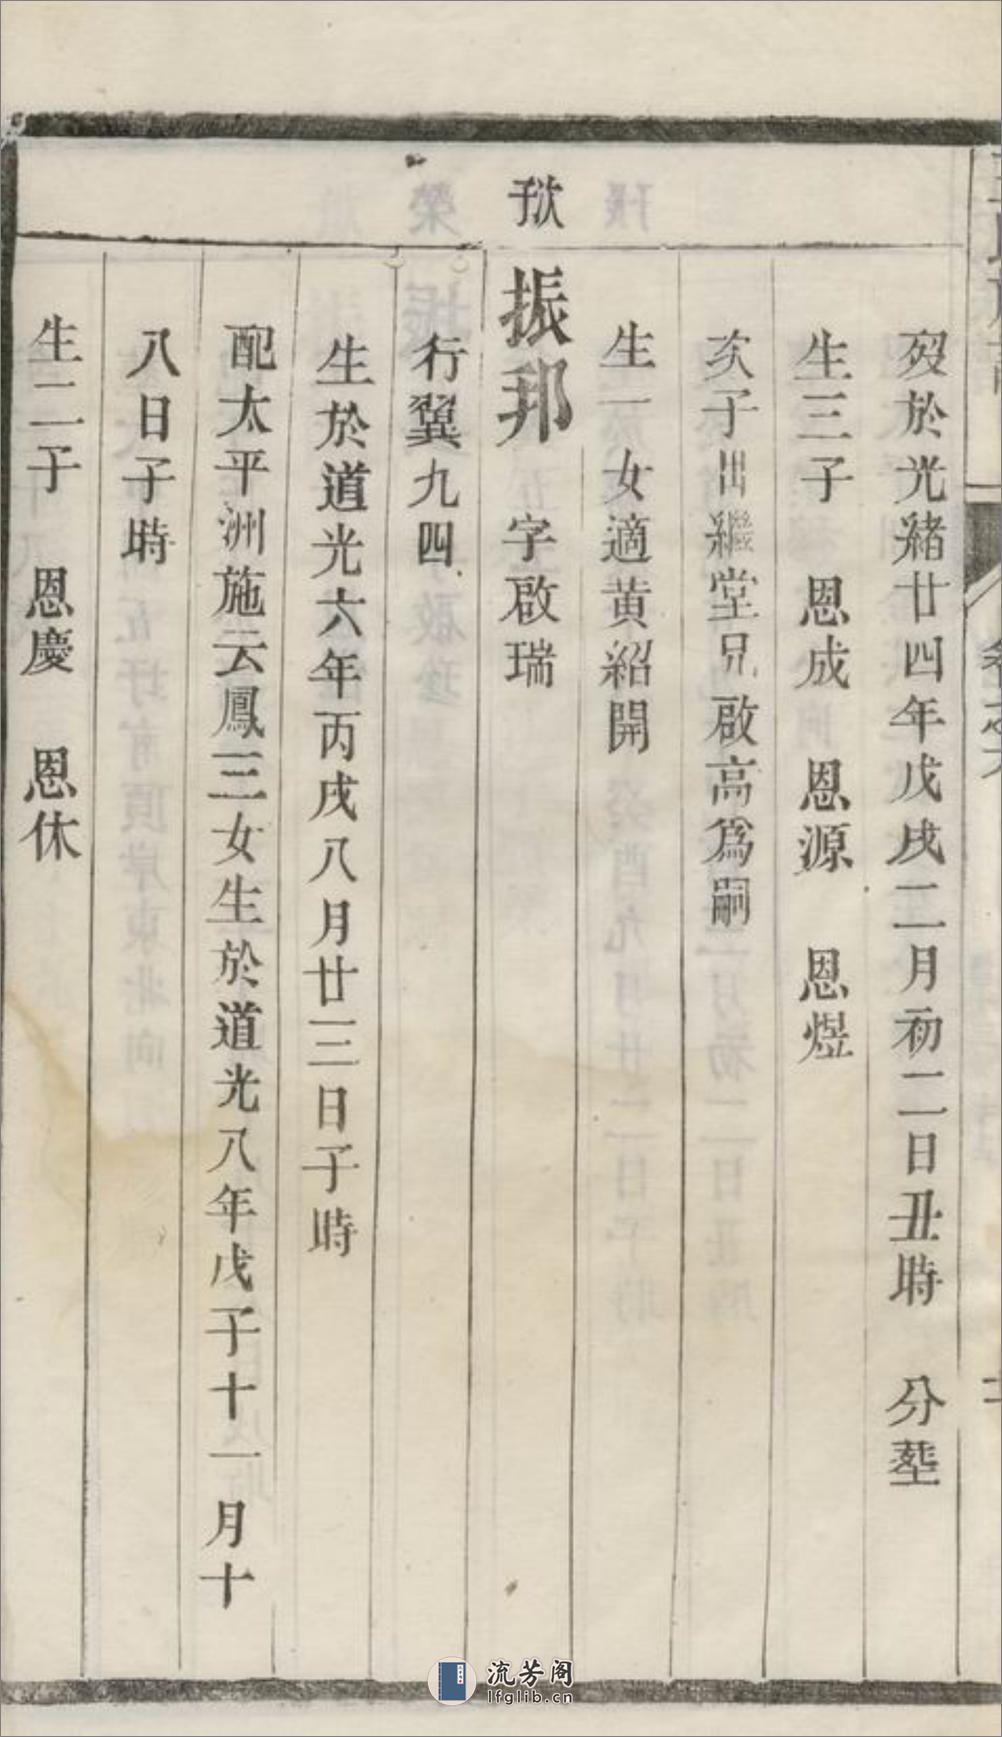 歿於光緒廿四年戊戌二月初二日丑時　分塟
生三子　恩成　恩源　恩煜
次子出繼堂兄啟高爲嗣
生一女適黄紹開
振邦　字啟瑞
行翼九四
生於道光六年丙戌八月廿三日子時
配太平洲施云鳳三女生於道光八年戊子十一月十
八日子時
生二子　恩慶　恩休
流芳阁
lfglib.cn